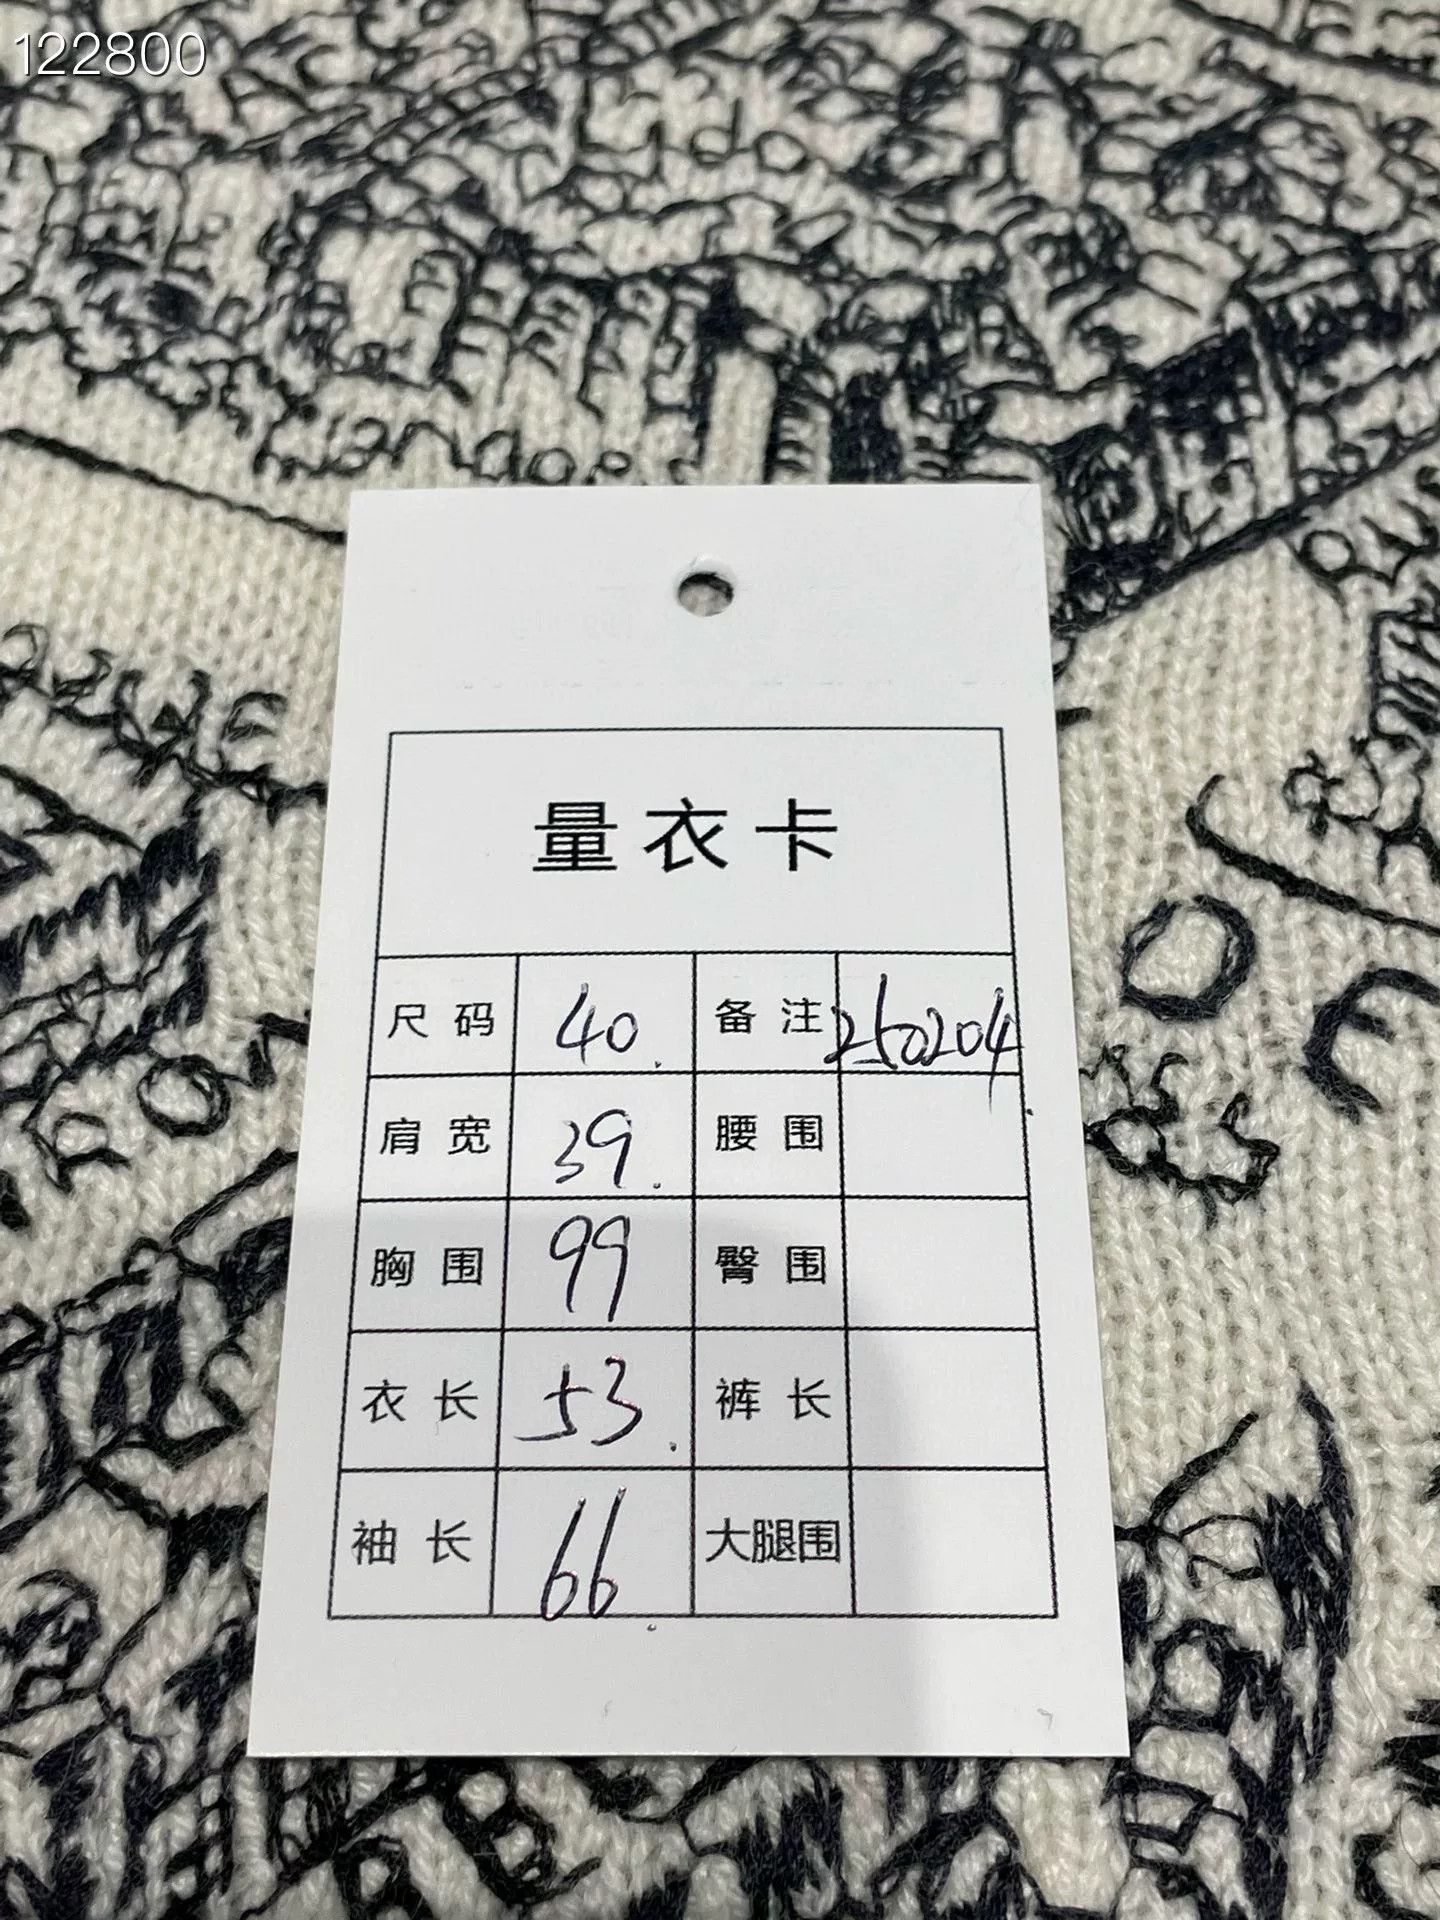 122800
Lido
Giandoi
量衣卡
尺码 40. 备注 250204
肩宽 39. 腰围
胸围 99 臀围
衣长 53. 裤长
袖长 66. 大腿围